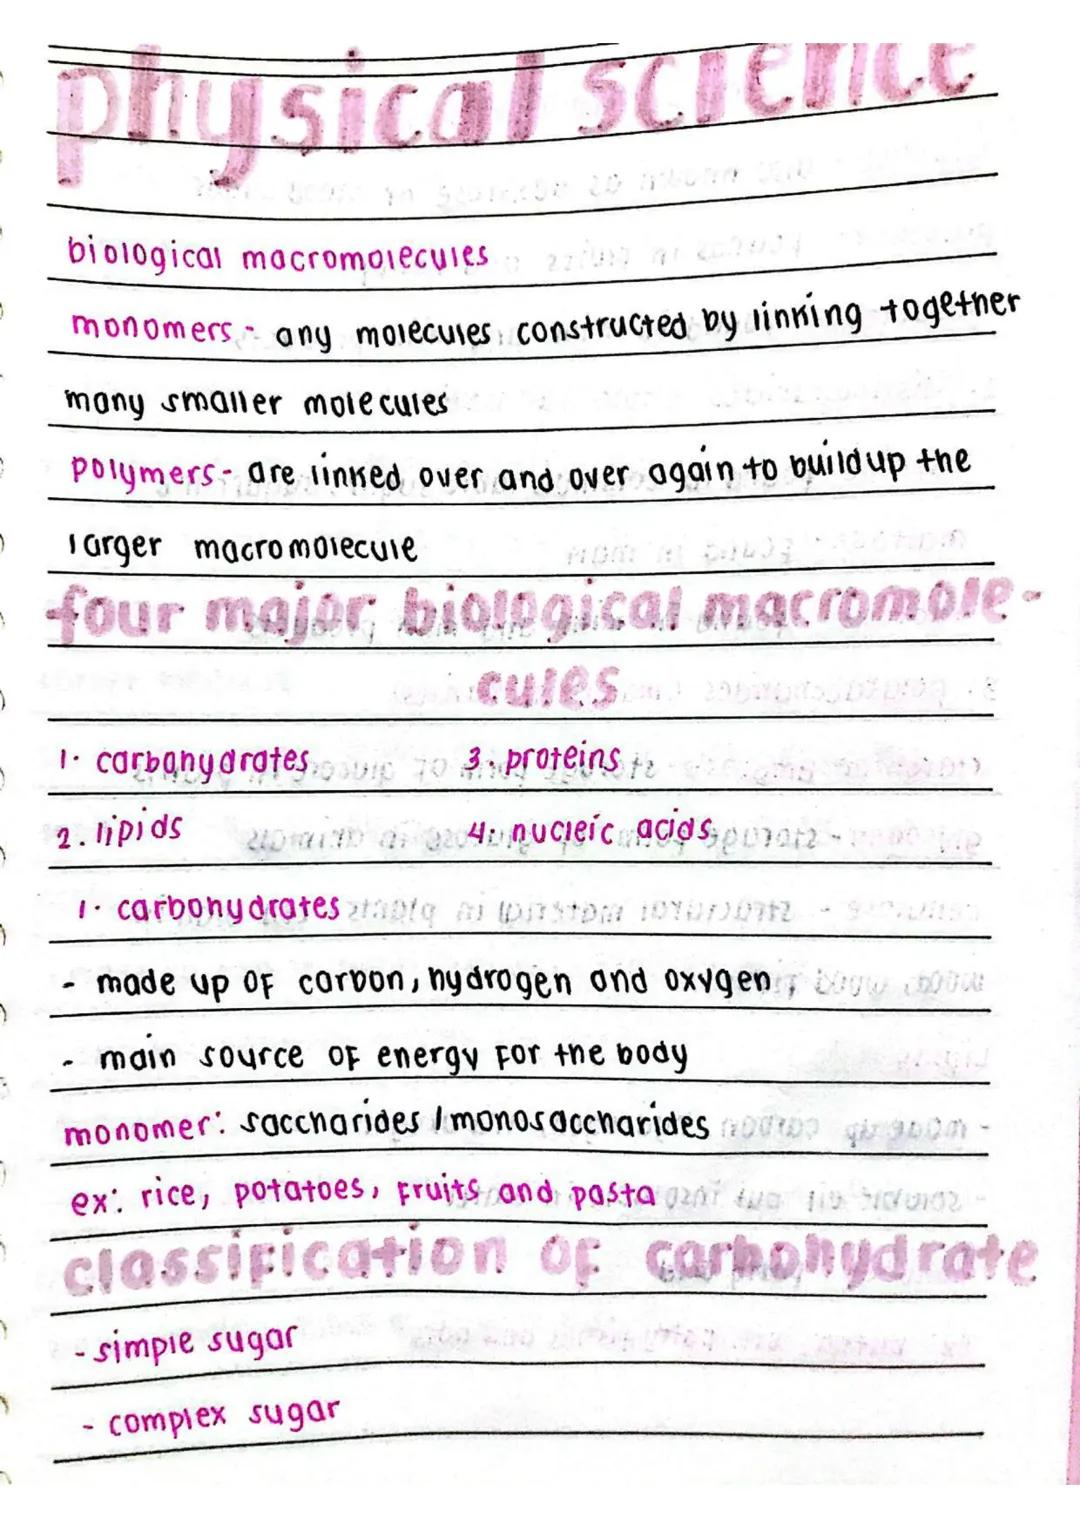 physical science
biological macromolecules
monomers - any molecules constructed by linking together
many smaller molecules
polymers - are linked over and over again to buildup the
larger macromolecule
four major biological macromole-
cules
1. carbohydrates 3. proteins
2. lipids 4. nucleic acids
1. carbohydrates
- made up of carbon, hydrogen and oxygen
- main source of energy for the body
monomer: saccharides / monosaccharides
ex: rice, potatoes, fruits and pasta
classification of carbohydrate
- simple sugar
- complex sugar